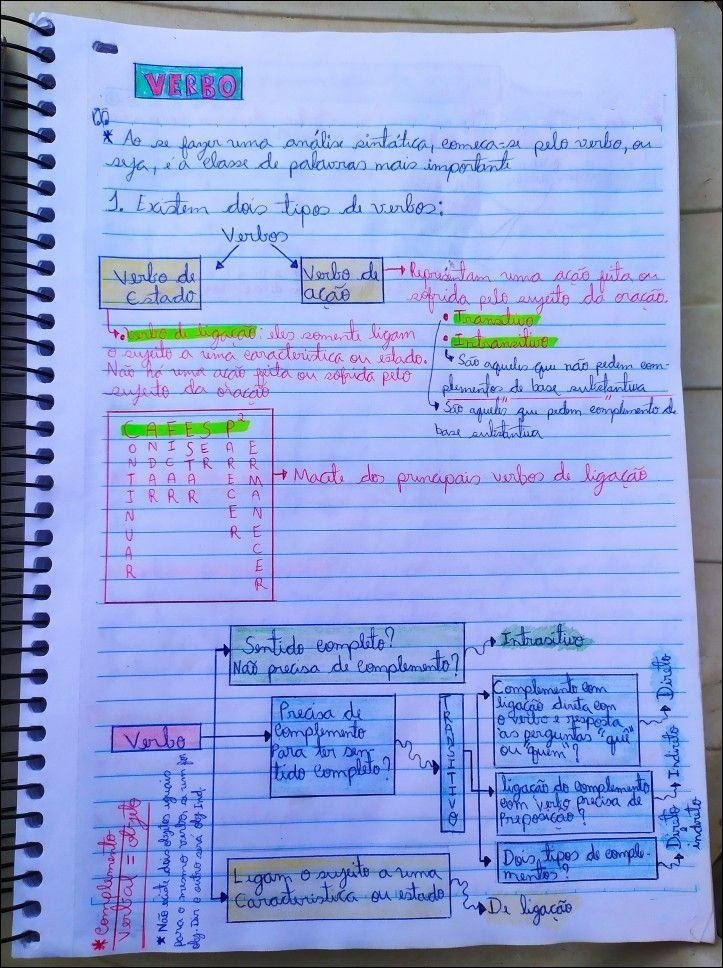 VERBO
* Ao se fazer uma análise sintática, começa-se pelo verbo, ou
seja, é a classe de palavras mais importante
1. Existem dois tipos de verbos:
Verbos
Verbo de
Estado
Verbo de
ação
Representam uma ação feita ou
sofrida pelo sujeito da oração.
• Transitivo
• Intransitivo
São aqueles que não pedem com-
plementos de base substantiva
São aqueles que pedem complemento de
base substantiva
• Verbo de ligação: eles somente ligam
o sujeito a uma característica ou estado.
Não há uma ação feita ou sofrida pelo
sujeito da oração
C A F E S P²
CONTINUAR
ANDAR
FICAR
ESTAR
SER
PARECER
PERMANECER
Macete dos principais verbos de ligação
Verbo
Sentido completo?
Não precisa de complemento?
Intrasitivo
Precisa de
complemento
para ter sen-
tido completo?
TRANSITIVO
Complemento com
ligação direta com
o verbo e resposta
às perguntas "quê"
ou "quem"?
Direto
ligação do complemento
com verbo precisa de
Preposição?
Indireto
Dois tipos de comple-
mentos?
Direto e
indireto
Ligam o sujeito a uma
Característica ou estado
De ligação
* Complemento
Verbal = objeto
* Não existe dois objetos iguais
para o mesmo verbo, se um for
obj. Dir o outro será obj. Ind.